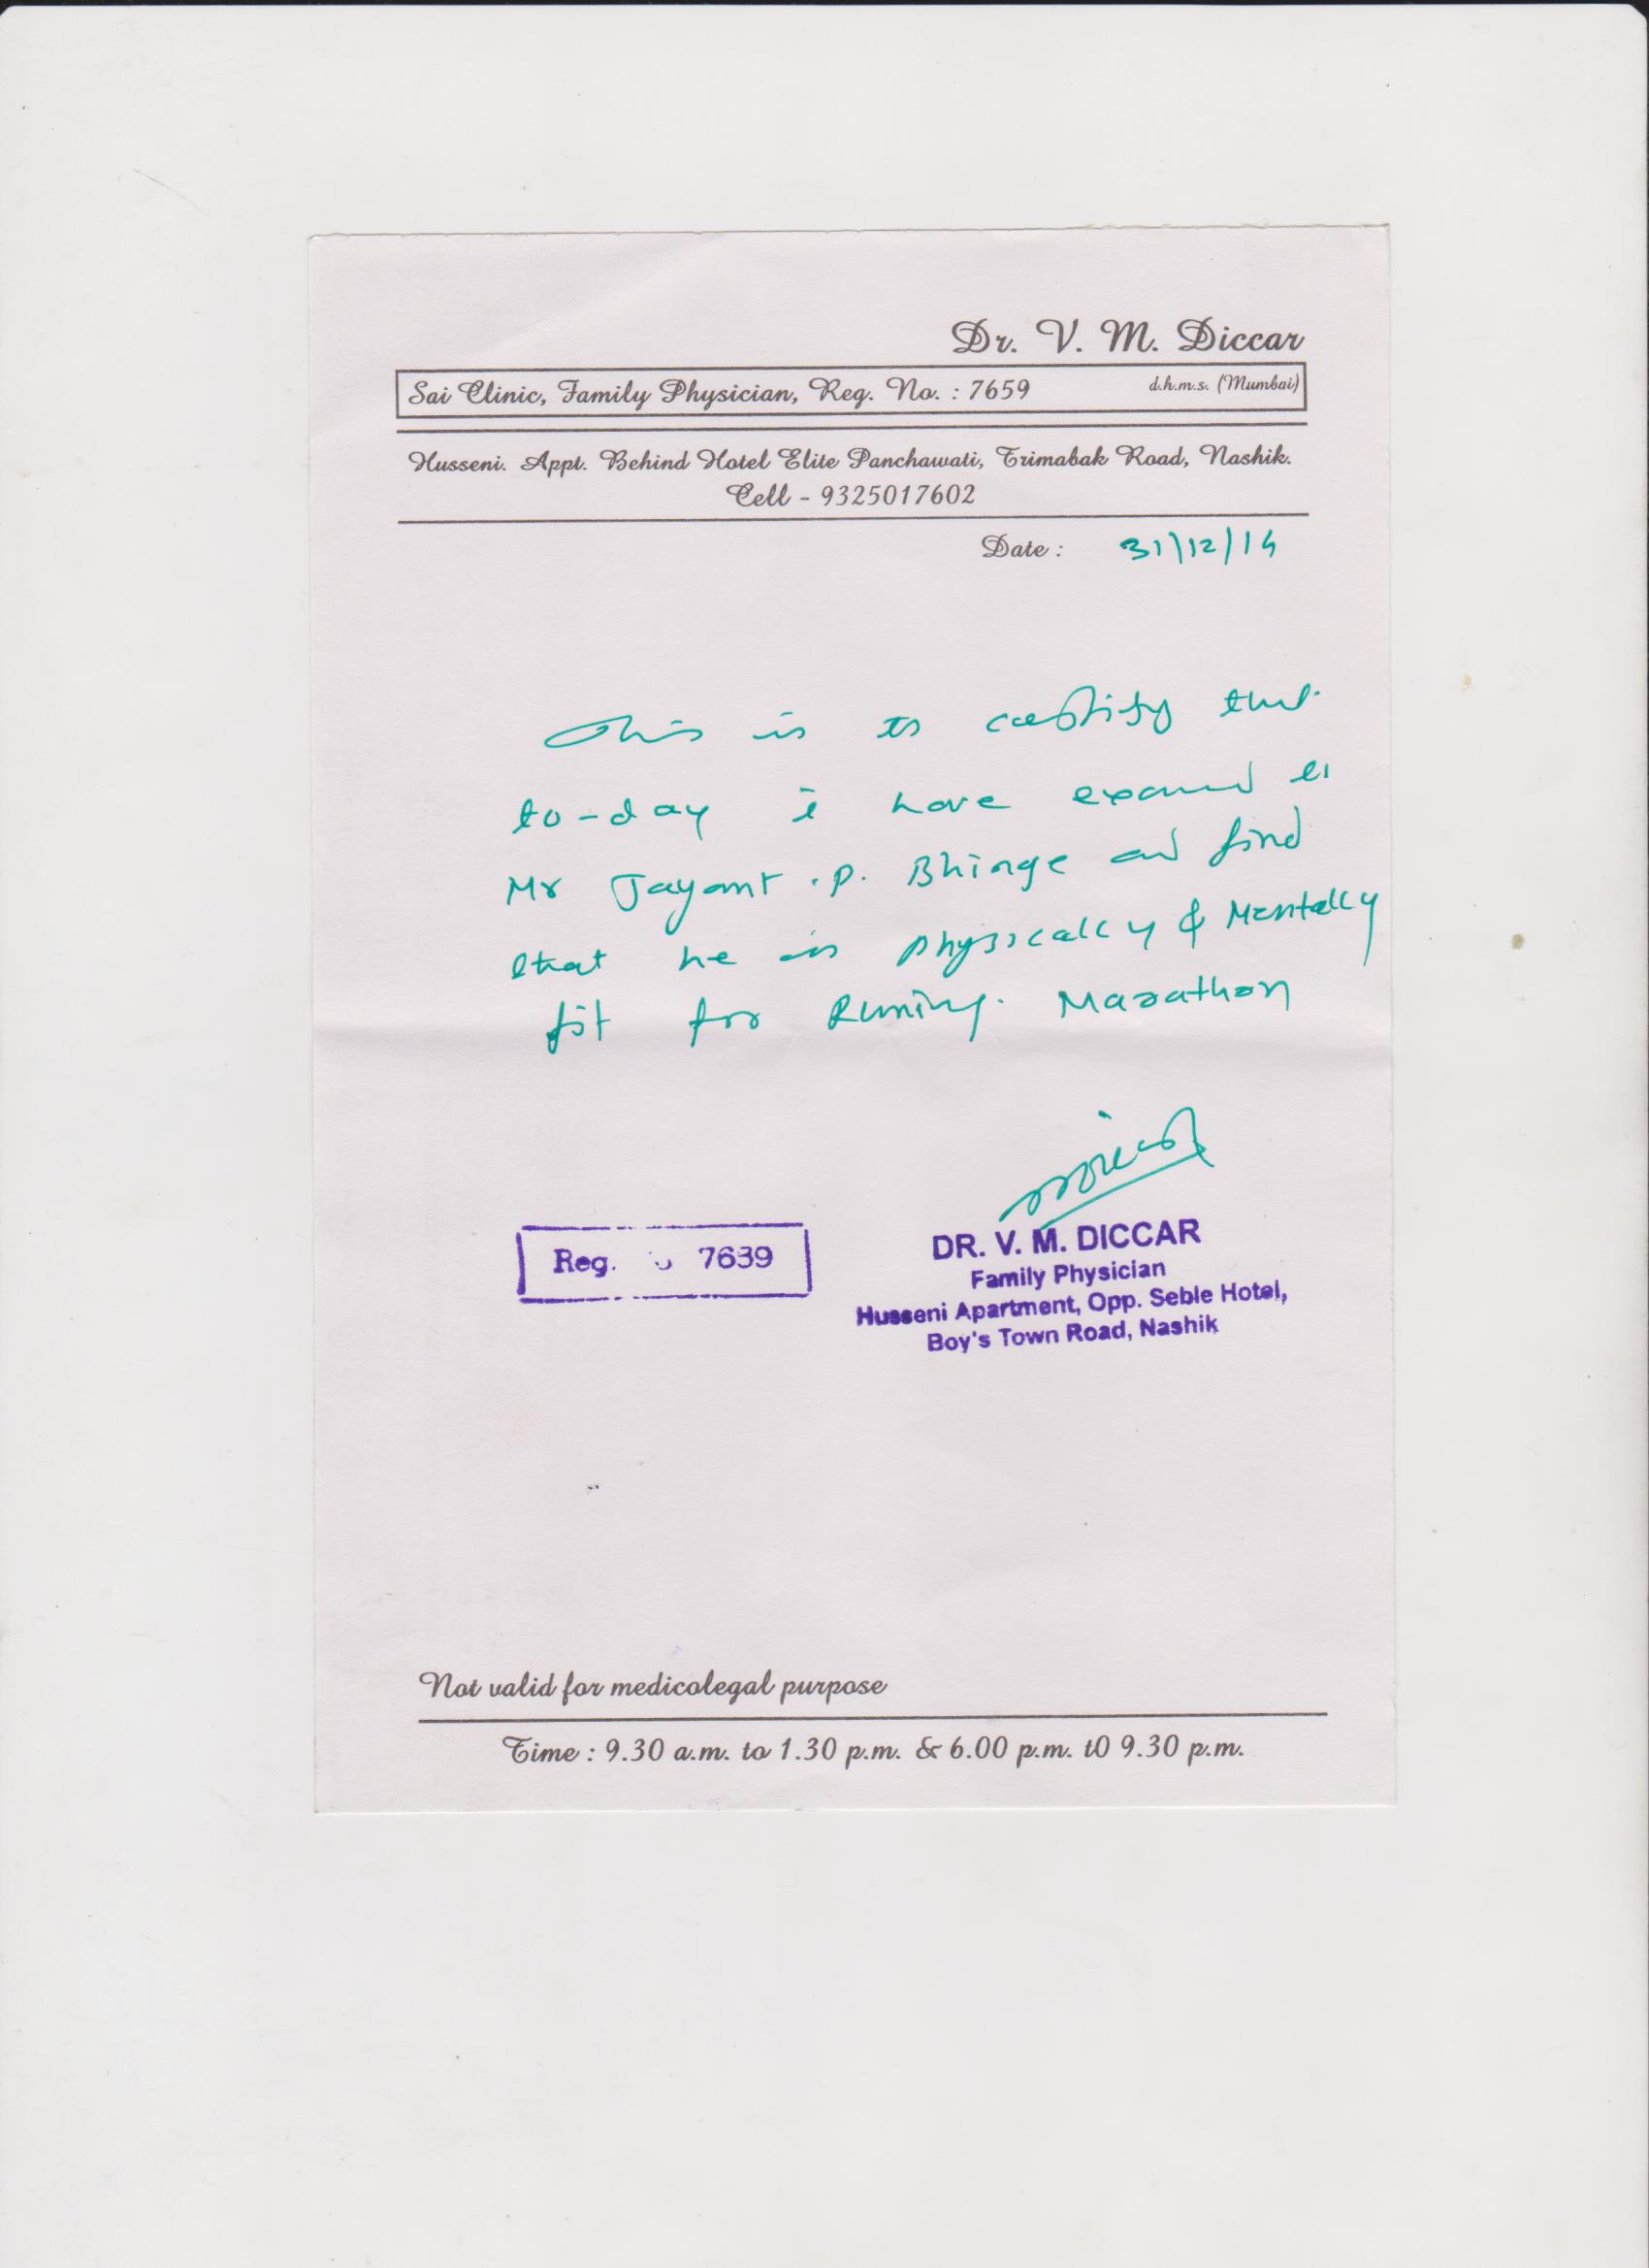 Dr. V. M. Diccar
Sai Clinic, Family Physician, Reg. No. : 7659 d.h.m.s. (Mumbai)
Husseni. Appt. Behind Hotel Elite Panchawati, Trimabak Road, Nashik.
Cell - 9325017602
Date : 31/12/14
This is to certify that
to-day i have
Mr Jayant .P. Bhinge and find
that he is physically & Mentally
fit for Runing. Marathon
Reg. 7639
DR. V. M. DICCAR
Family Physician
Husseni Apartment, Opp. Seble Hotel,
Boy's Town Road, Nashik
Not valid for medicolegal purpose
Time : 9.30 a.m. to 1.30 p.m. & 6.00 p.m. t0 9.30 p.m.